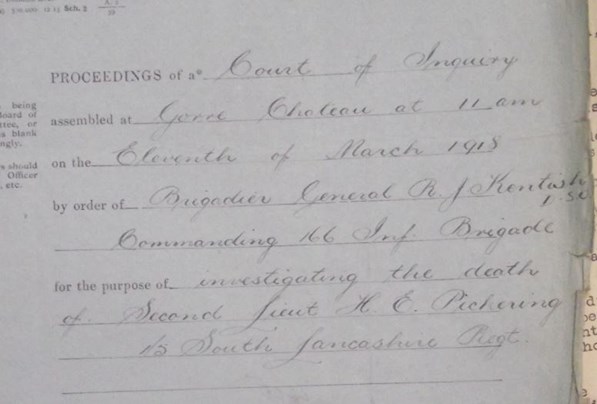 PROCEEDINGS of a* Court of Inquiry
assembled at Gorre Chateau at 11 am
on the Eleventh of March 1918
by order of Brigadier General R J Kentish
D.S.O
Commanding 166 Inf. Brigade
for the purpose of investigating the death
of Second Lieut H. E. Pickering
1/5 South Lancashire Regt.
being
Board of
or
a blank
should
Officer
etc.